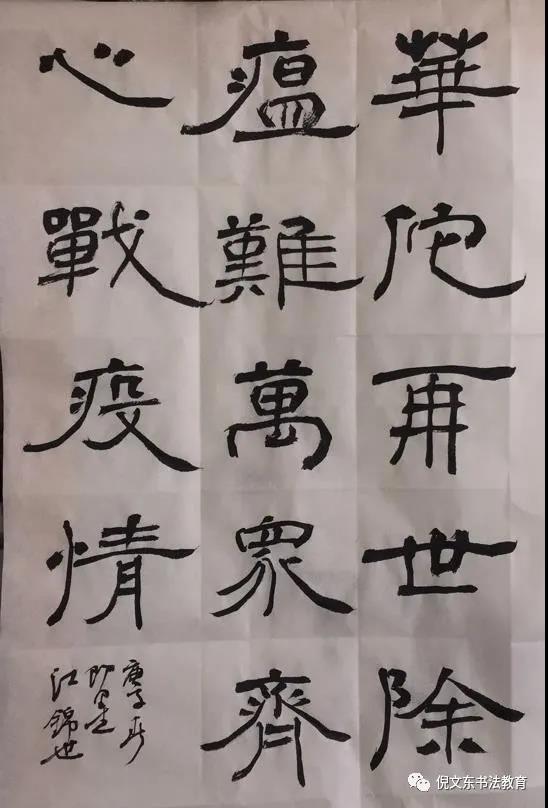 華佗再世除
瘟難萬眾齊
心戰疫情
庚子春
江錦世
倪文东书法教育